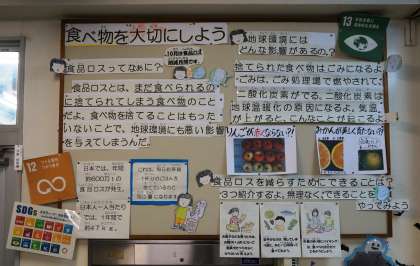 食べ物を大切にしよう
10月は食品ロス
削減月間です
食品ロスってなぁに？
食品ロスとは、まだ食べられるの
に捨てられてしまう食べ物のこと
だよ。食べ物を捨てることはもった
いないことで、地球環境にも悪い影響
を与えてしまうんだ。
地球環境には
どんな影響があるの？
捨てられた食べ物はごみになるよ。
ごみは、ごみ処理場で燃やされて、
二酸化炭素がでる。二酸化炭素は
地球温暖化の原因になるよ。気温
が上がると、こんなことが起こるよ。
りんごが赤くならない？！
みかんが美しく育たない？！
12
つくる責任
つかう責任
13
SDGs
日本では、年間
約600万tの
食品ロスが発生。
日本人一人当たり
では、1年間で
約47kg。
食品ロスを減らすためにできることは？
3つ紹介するよ。無理なく、できることを
やってみよう